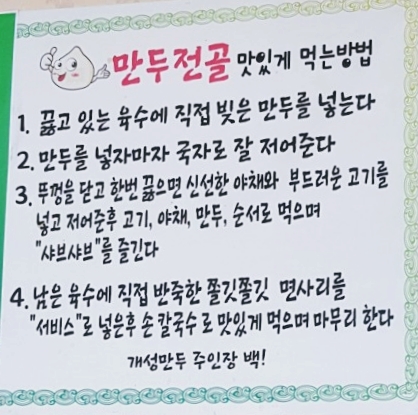 만두전골 맛있게 먹는방법
1. 끓고 있는 육수에 직접 빚은 만두를 넣는다
2. 만두를 넣자마자 국자로 잘 저어준다
3. 뚜껑을 닫고 한번 끓으면 신선한 야채와 부드러운 고기를
넣고 저어준후 고기, 야채, 만두, 순서로 먹으며
"샤브샤브"를 즐긴다
4. 남은 육수에 직접 반죽한 쫄깃쫄깃 면사리를
"서비스"로 넣은후 손 칼국수로 맛있게 먹으며 마무리 한다
개성만두 주인장 백!